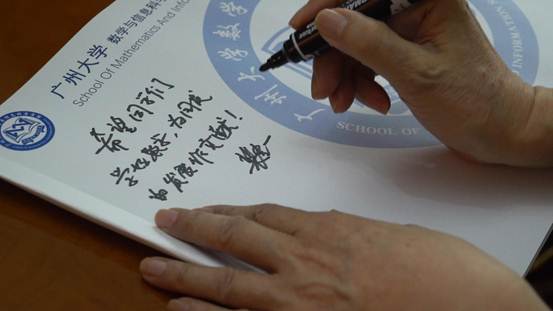 广州大学 数学与信息科
School Of Mathematics And Info
希望同学们
学好数学，为
的发展作贡献！
广州大学数学
SCHOOL OF